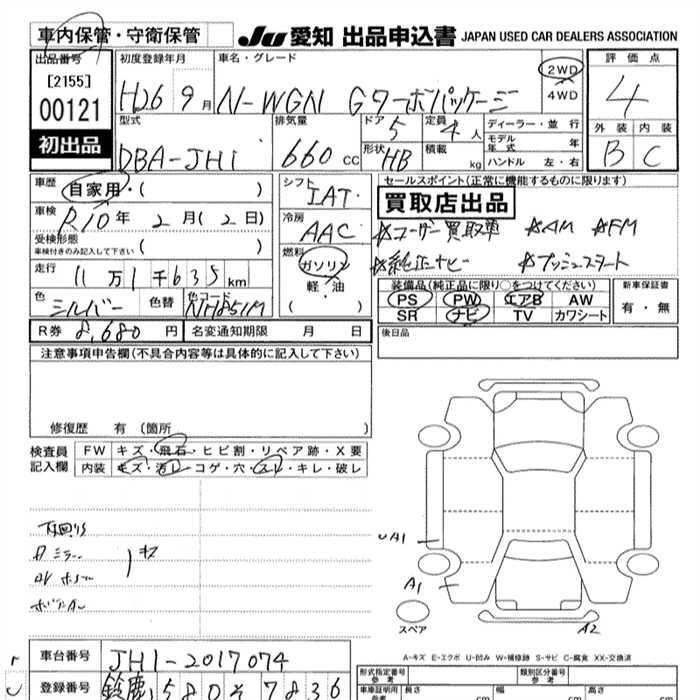 車内保管・守衛保管
JU 愛知 出品申込書 JAPAN USED CAR DEALERS ASSOCIATION
出品番号
[2155]
00121
初出品
初度登録年月
H26 9月
車名・グレード
N-WGN Gターボパッケージ
2WD
4WD
評価点
4
外装 内装
B C
型式
DBA-JH1
排気量
660 cc
ドア 5
形状 HB
定員 4人
積載 kg
ディーラー・並行
モデル年式 年
ハンドル 左・右
車歴 自家用・( )
車検 R10年 2月(2日)
受検形態
車検付きのみ記入して下さい ( )
走行 11万1千635km
色 シルバー 色替 色コード NH851M
R券 8,680円 名変通知期限 月 日
シフト
IAT
冷房
AAC
燃料
ガソリン
軽・油
( )
セールスポイント(正常に機能するものに限ります)
買取店出品
☆ユーザー買取車 ☆AM ☆FM
☆純正ナビ ☆プッシュスタート
装備品(純正品に限り○をつけてください)
PS PW エアB AW
SR ナビ TV カワシート
新車保証書
有・無
後日品
注意事項申告欄(不具合内容等は具体的に記入して下さい)
修復歴 有(箇所 )
検査員記入欄
FW キズ・飛石・ヒビ割・リペア跡・X要
内装 キズ・汚レ・コゲ・穴・スレ・キレ・破レ
下廻りS
キズ
UA1
A1
A2
スペア
A-キズ E-エクボ U-凹み W-補修跡 S-サビ C-腐食 XX-交換済
車台番号 JH1-2017074
登録番号 鈴鹿 580 そ 7836
形式指定番号
参考
類別区分番号
参考
車庫証明用
参考
長さ cm 幅 cm 高さ cm